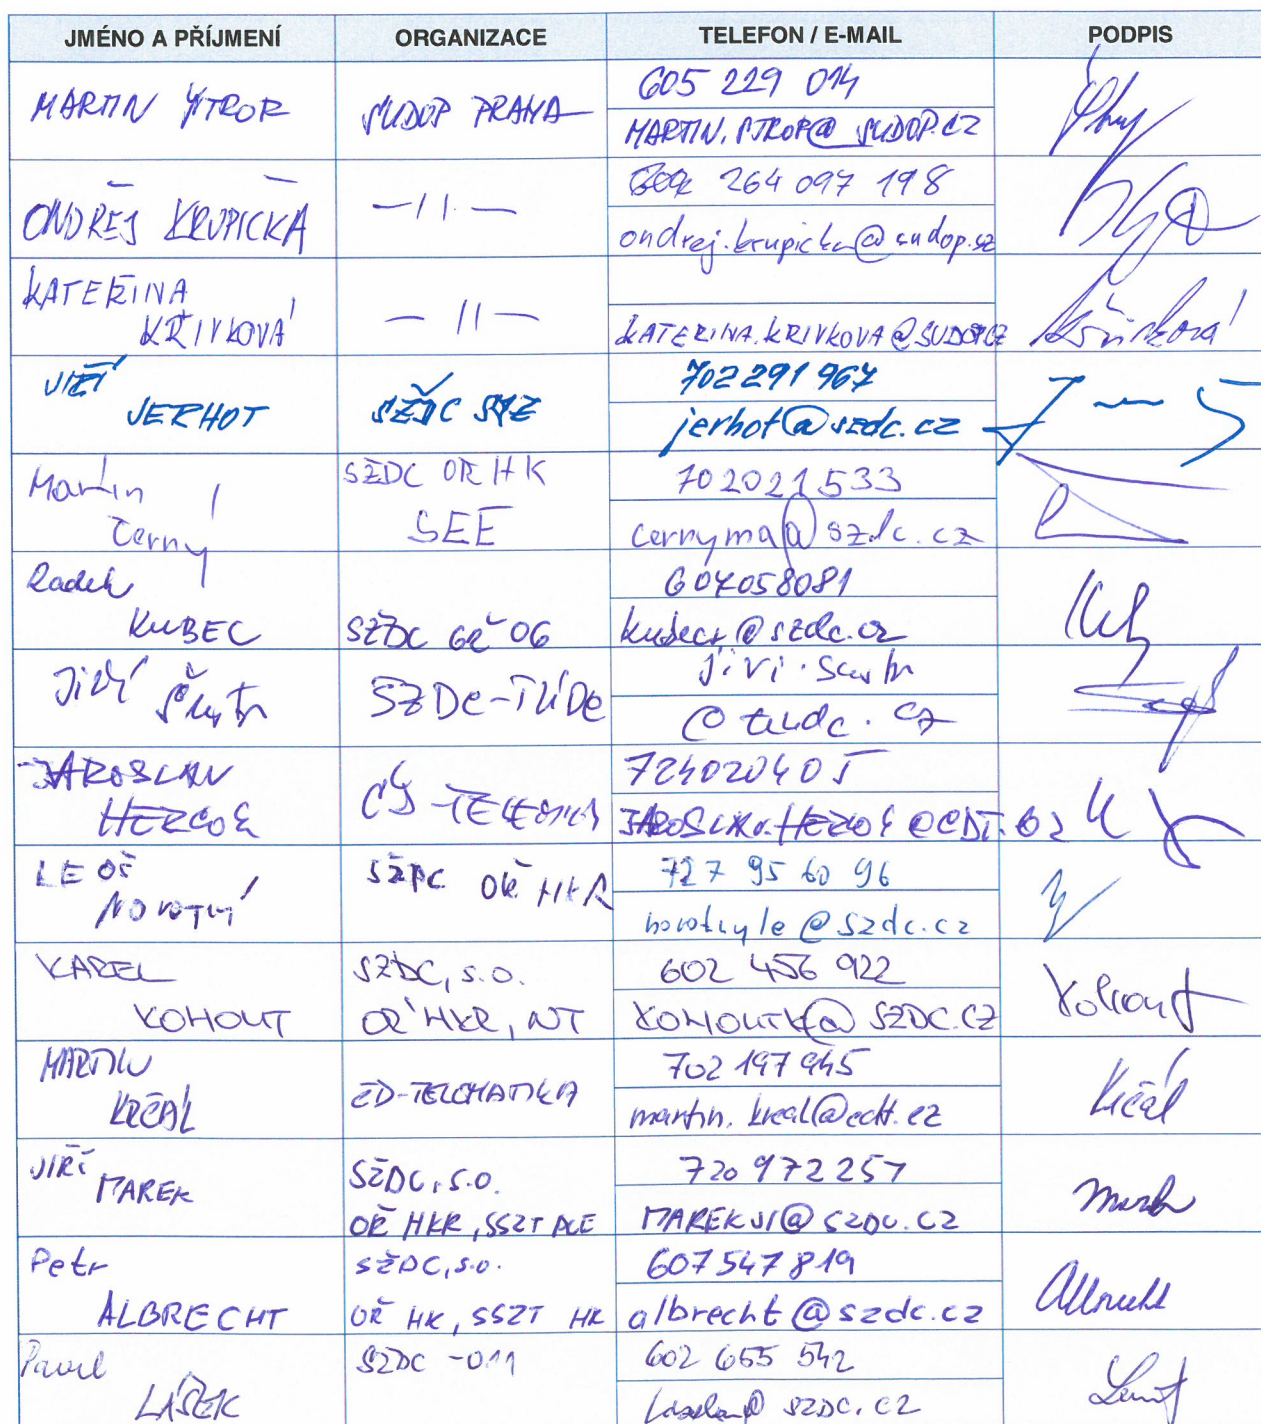 JMÉNO A PŘÍJMENÍ ORGANIZACE TELEFON / E-MAIL PODPIS
MARTIN SUDOP PRAHA 605 229 014
MARTIN.STROP@SUDOP.CZ
ONDŘEJ KRUPIČKA -11- 264 097 198
ondrej.krupicka@sudop.cz
KATEŘINA
KŘIVKOVÁ -11- KATERINA.KRIVKOVA@SUDOP.CZ Křivková
JIŘÍ
JERHOT SŽDC 702 291 967
jerhot@szdc.cz
Martin
Černý SŽDC OŘ HK
SEE 702021533
cernyma@szdc.cz
Radek
KUBEC SŽDC GŘ O6 607058081
kubecr@szdc.cz
Jiří SŽDC-TÚDC jiri.
@tudc.cz
JAROSLAV
HERCOG ČD-TELEMATIKA 724020405
LEOŠ
NOVOTNÝ SŽDC OŘ HKR 727 95 60 96
novotnyle@szdc.cz
KAREL
KOHOUT SŽDC, s.o.
OŘ HKR, NT 602 456 922
KOHOUTK@SZDC.CZ Kohout
MARTIN
KRČÁL ČD-TELEMATIKA 702 197 945
martin.krcal@cdt.cz Krčál
JIŘÍ
MAREK SŽDC, s.o.
OŘ HKR, SSZT PCE 720 972 257
MAREKJI@SZDC.CZ Marek
Petr
ALBRECHT SŽDC, s.o.
OŘ HK, SSZT HK 607547819
albrecht@szdc.cz Albrecht
Pavel
LÁŠEK SŽDC - O11 602 655 542
@szdc.cz